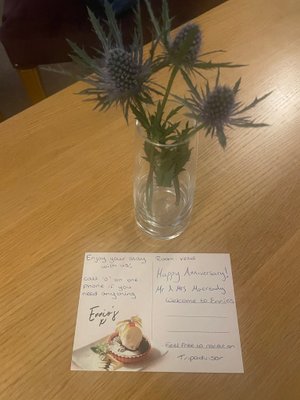 Enjoy your stay
with us!
call '0' on one
phone if you
need anything
Ennio's
Happy Anniversary!
Mr & Mrs
Welcome to Ennios
Feel free to review on
Tripadvisor